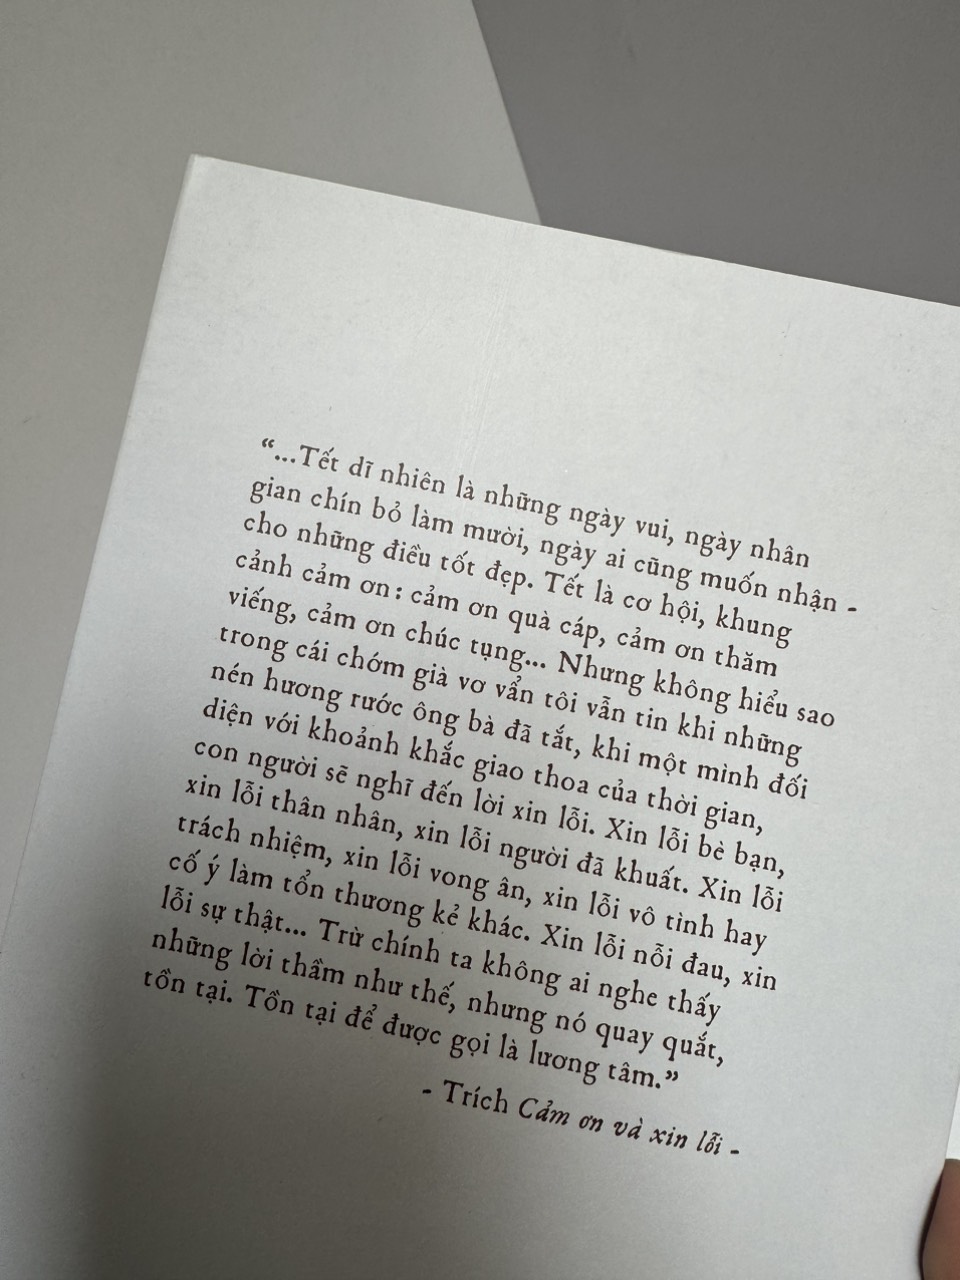 “...Tết dĩ nhiên là những ngày vui, ngày nhân
gian chín bỏ làm mười, ngày ai cũng muốn nhận -
cho những điều tốt đẹp. Tết là cơ hội, khung
cảnh cảm ơn: cảm ơn quà cáp, cảm ơn thăm
viếng, cảm ơn chúc tụng... Nhưng không hiểu sao
trong cái chớm già vơ vẩn tôi vẫn tin khi những
nén hương rước ông bà đã tắt, khi một mình đối
diện với khoảnh khắc giao thoa của thời gian,
con người sẽ nghĩ đến lời xin lỗi. Xin lỗi bè bạn,
xin lỗi thân nhân, xin lỗi người đã khuất. Xin lỗi
trách nhiệm, xin lỗi vong ân, xin lỗi vô tình hay
cố ý làm tổn thương kẻ khác. Xin lỗi nỗi đau, xin
lỗi sự thật... Trừ chính ta không ai nghe thấy
những lời thầm như thế, nhưng nó quay quắt,
tồn tại. Tồn tại để được gọi là lương tâm.”
- Trích Cảm ơn và xin lỗi -